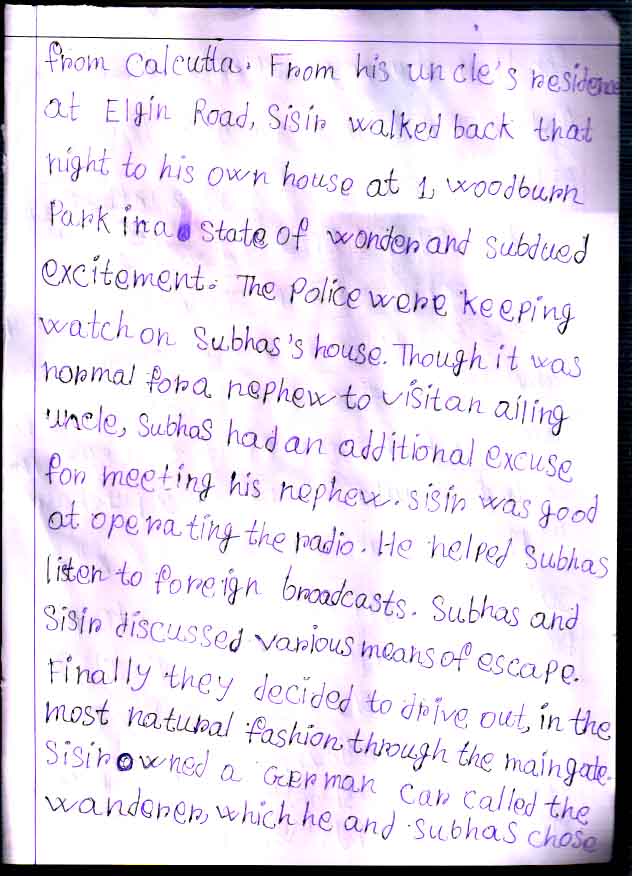 from Calcutta. From his uncle's residence
at Elgin Road, Sisir walked back that
night to his own house at 1, woodburn
Park in a state of wonder and subdued
excitement. The Police were keeping
watch on Subhas's house. Though it was
normal for a nephew to visit an ailing
uncle, Subhas had an additional excuse
for meeting his nephew. Sisir was good
at operating the radio. He helped Subhas
listen to foreign broadcasts. Subhas and
Sisir discussed various means of escape.
Finally they decided to drive out, in the
most natural fashion through the main gate.
Sisir owned a German car called the
wanderer, which he and Subhas chose